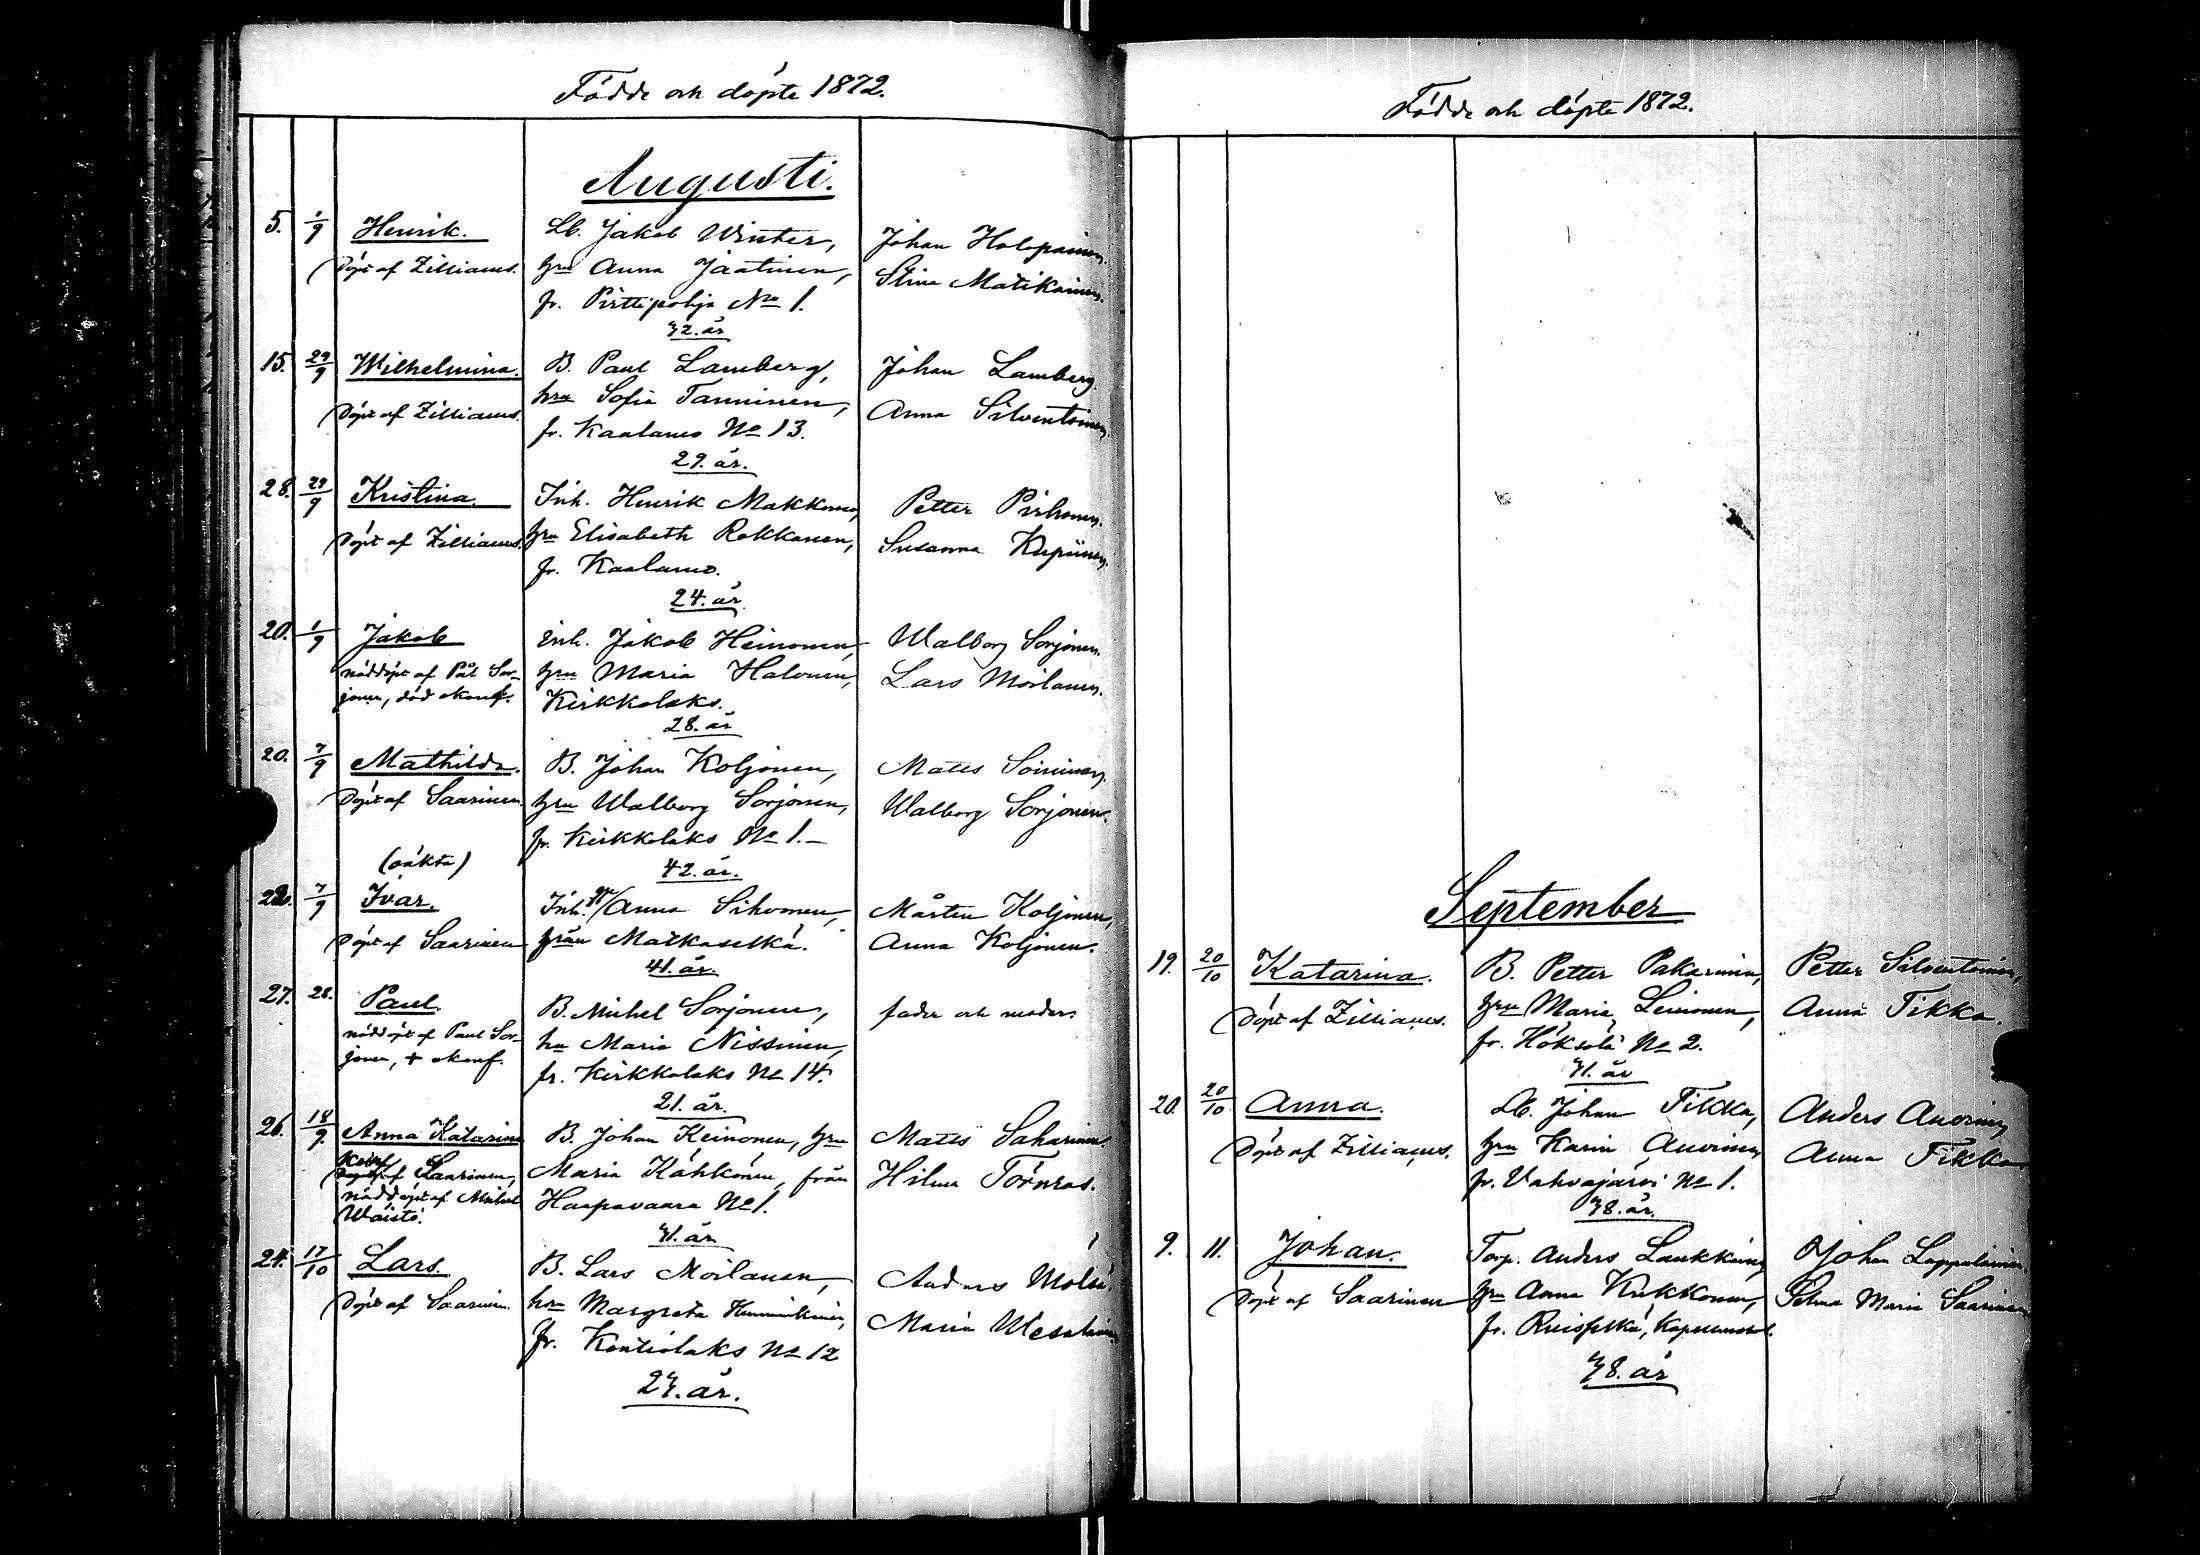 Födde och döpte 1872.
Augusti.
5. 1/9 Henrik. Lb. Jakob Winter, Johan Holopainen.
Döpt af Zilliacus. hru Anna Jaatinen, Stina Matikainen.
fr. Pirttipohja No 1.
32. år
15. 29/9 Wilhelmina. B. Paul Lamberg, Johan Lamberg.
Döpt af Zilliacus. hru Sofia Tanninen, Anna Silventoinen.
fr. Kaalamo No 13.
29. år.
28. 29/9 Kristina. Inh. Henrik Makkonen, Petter Pirhonen.
Döpt af Zilliacus. hru Elisabeth Rokkanen, Susanna
fr. Kaalamo.
24. år.
20. 1/9 Jakob inh. Jakob Heinonen, Walborg Sorjonen.
nöddöpt af Pål Sor- hru Maria Halonen, Lars Moilanen.
jonen, död okonf. Kirkkolaks.
28. år
20. 7/9 Mathilda. B. Johan Koljonen, Matts Soininen,
Döpt af Saarinen. hru Walborg Sorjonen, Walborg Sorjonen.
fr. Kirkkolaks No 1.–
42. år.
(oäkta)
22. 7/9 Ivar. Inh. Anna Sihvonen, Mårten Koljonen,
Döpt af Saarinen från Matkaselkä. Anna Koljonen.
41. år.
27. 28. Paul. B. Michel Sorjonen, fader och moder.
nöddöpt af Paul Sor- hru Maria Nissinen,
jonen, + okonf. fr. Kirkkolaks No 14.
21. år.
26. 18/9. Anna Katarina B. Johan Keinonen, hru Matts Saharinen.
Konf. af Saarinen, Maria Kähkönen, från Hilma Törnroos.
nöddöpt af Michel Haapavaara No 1.
Waistö.
31. år
24. 17/10 Lars. B. Lars Moilanen, Anders Molsä.
Döpt af Saarinen. hru Margreta Maria
fr. Kontiolaks No 12
23. år.
Födde och döpte 1872.
September
19. 20/10 Katarina. B. Petter Pakarinen, Petter Silventoinen,
Döpt af Zilliacus. hru Maria Leinonen, Anna Tikka.
fr. Höksölä No 2.
31. år
20. 20/10 Anna. Lb. Johan Tikka, Anders Auvinen,
Döpt af Zilliacus. hru Karin Auvinen, Anna Tikka
fr. Vahvajärvi No 1.
38. år.
9. 11. Johan. Torp. Anders Laukkanen, Johan Lappalainen
Döpt af Saarinen hru Anna Kukkonen, Selma Maria Saarinen
fr. Ruisselkä,
38. år